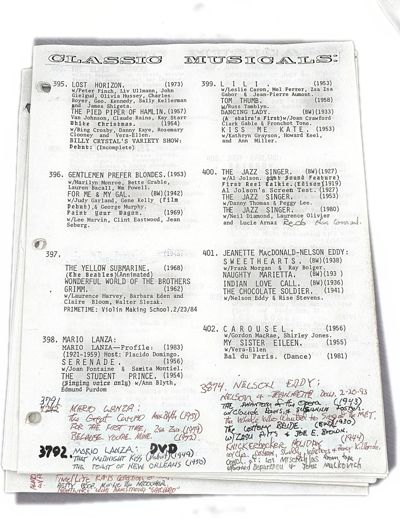 CLASSIC MUSICALS:
395. LOST HORIZON. (1973)
w/Peter Finch, Liv Ullmann, John
Gielgud, Olivia Hussey, Charles
Boyer, Geo. Kennedy, Sally Kellerman
and James Shigeta.
THE PIED PIPER OF HAMLIN. (1957)
Van Johnson, Claude Rains, Kay Starr
White Christmas. (1954)
w/Bing Crosby, Danny Kaye, Rosemary
Clooney and Vera-Ellen.
BILLY CRYSTAL'S VARIETY SHOW:
Debut: (Incomplete)
396. GENTLEMEN PREFER BLONDES. (1953)
w/Marilyn Monroe, Bette Grable,
Lauren Bacall, Wm Powell.
FOR ME & MY GAL. BW)(1942)
w/Judy Garland, Gene Kelly (film
Debut), & George Murphy.
Paint Your Wagon. (1969)
w/Lee Marvin, Clint Eastwood, Jean
Seberg.
397.
THE YELLOW SUBMARINE. (1968)
(The Beatles)(Animated)
WONDERFUL WORLD OF THE BROTHERS
GRIMM. (1962)
w/Laurence Harvey, Barbara Eden and
Claire Bloom, Walter Slezak.
PRIMETIME: Violin Making School.2/23/84
398. MARIO LANZA:
MARIO LANZA—Profile: (1983)
(1921-1959) Host: Placido Domingo.
SERENADE. (1956)
w/Joan Fontaine & Samita Montiel.
THE STUDENT PRINCE. (1954)
(Singing voice only) w/Ann Blyth,
Edmund Purdom
3791
MARIO LANZA:
The Great Caruso
For the First Time, Zsa Zsa (1959)
BECAUSE YOU'RE MINE. (1952)
3792. MARIO LANZA: DVD
THAT MIDNIGHT KISS (1949)
THE TOAST OF NEW ORLEANS (1950)
399. LILI. (1953)
w/Leslie Caron, Mel Ferrer, Zsa Zsa
Gabor & Jean-Pierre Aumont.
TOM THUMB. (1958)
w/Russ Tamblyn.
DANCING LADY. (BW)(1933)
(A staire's First)w/Joan Crawford
Clark Gable & Franchot Tone.
KISS ME KATE. (1953)
w/Kathryn Grayson, Howard Keel,
and Ann Miller.
400. THE JAZZ SINGER. (BW)(1927)
w/Al Jolson. Sound Feature)
First Reel Talkie.(Edison)1919)
Al Jolson's Screen Test.(1927)
THE JAZZ SINGER. (1953)
w/Danny Thomas & Peggy Lee.
THE JAZZ SINGER. (1980)
w/Neil Diamond, Laurence Olivier
and Lucie Arnaz
401. JEANETTE MacDONALD-NELSON EDDY:
SWEETHEARTS. (BW)(1938)
w/Frank Morgan & Ray Bolger.
NAUGHTY MARIETTA. (BW)(193 )
INDIAN LOVE CALL. (BW)(1936)
THE CHOCOLATE SOLDIER. (1941)
w/Nelson Eddy & Rise Stevens.
402. CAROUSEL. (1956)
w/Gordon MacRae, Shirley Jones.
MY SISTER EILEEN. (1955)
w/Vera-Ellen
Bal du Paris. (Dance) (1981)
3874. NELSON EDDY:
NELSON & JEANETTE 2-20-93
THE PHANTOM of the OPERA (1943)
w/Claude Rains & SUSANNA FOSTER.
The Whale Who Wanted to Sing at the MET.
KNICKERBOCKER HOLIDAY (1944)
John Malkovich